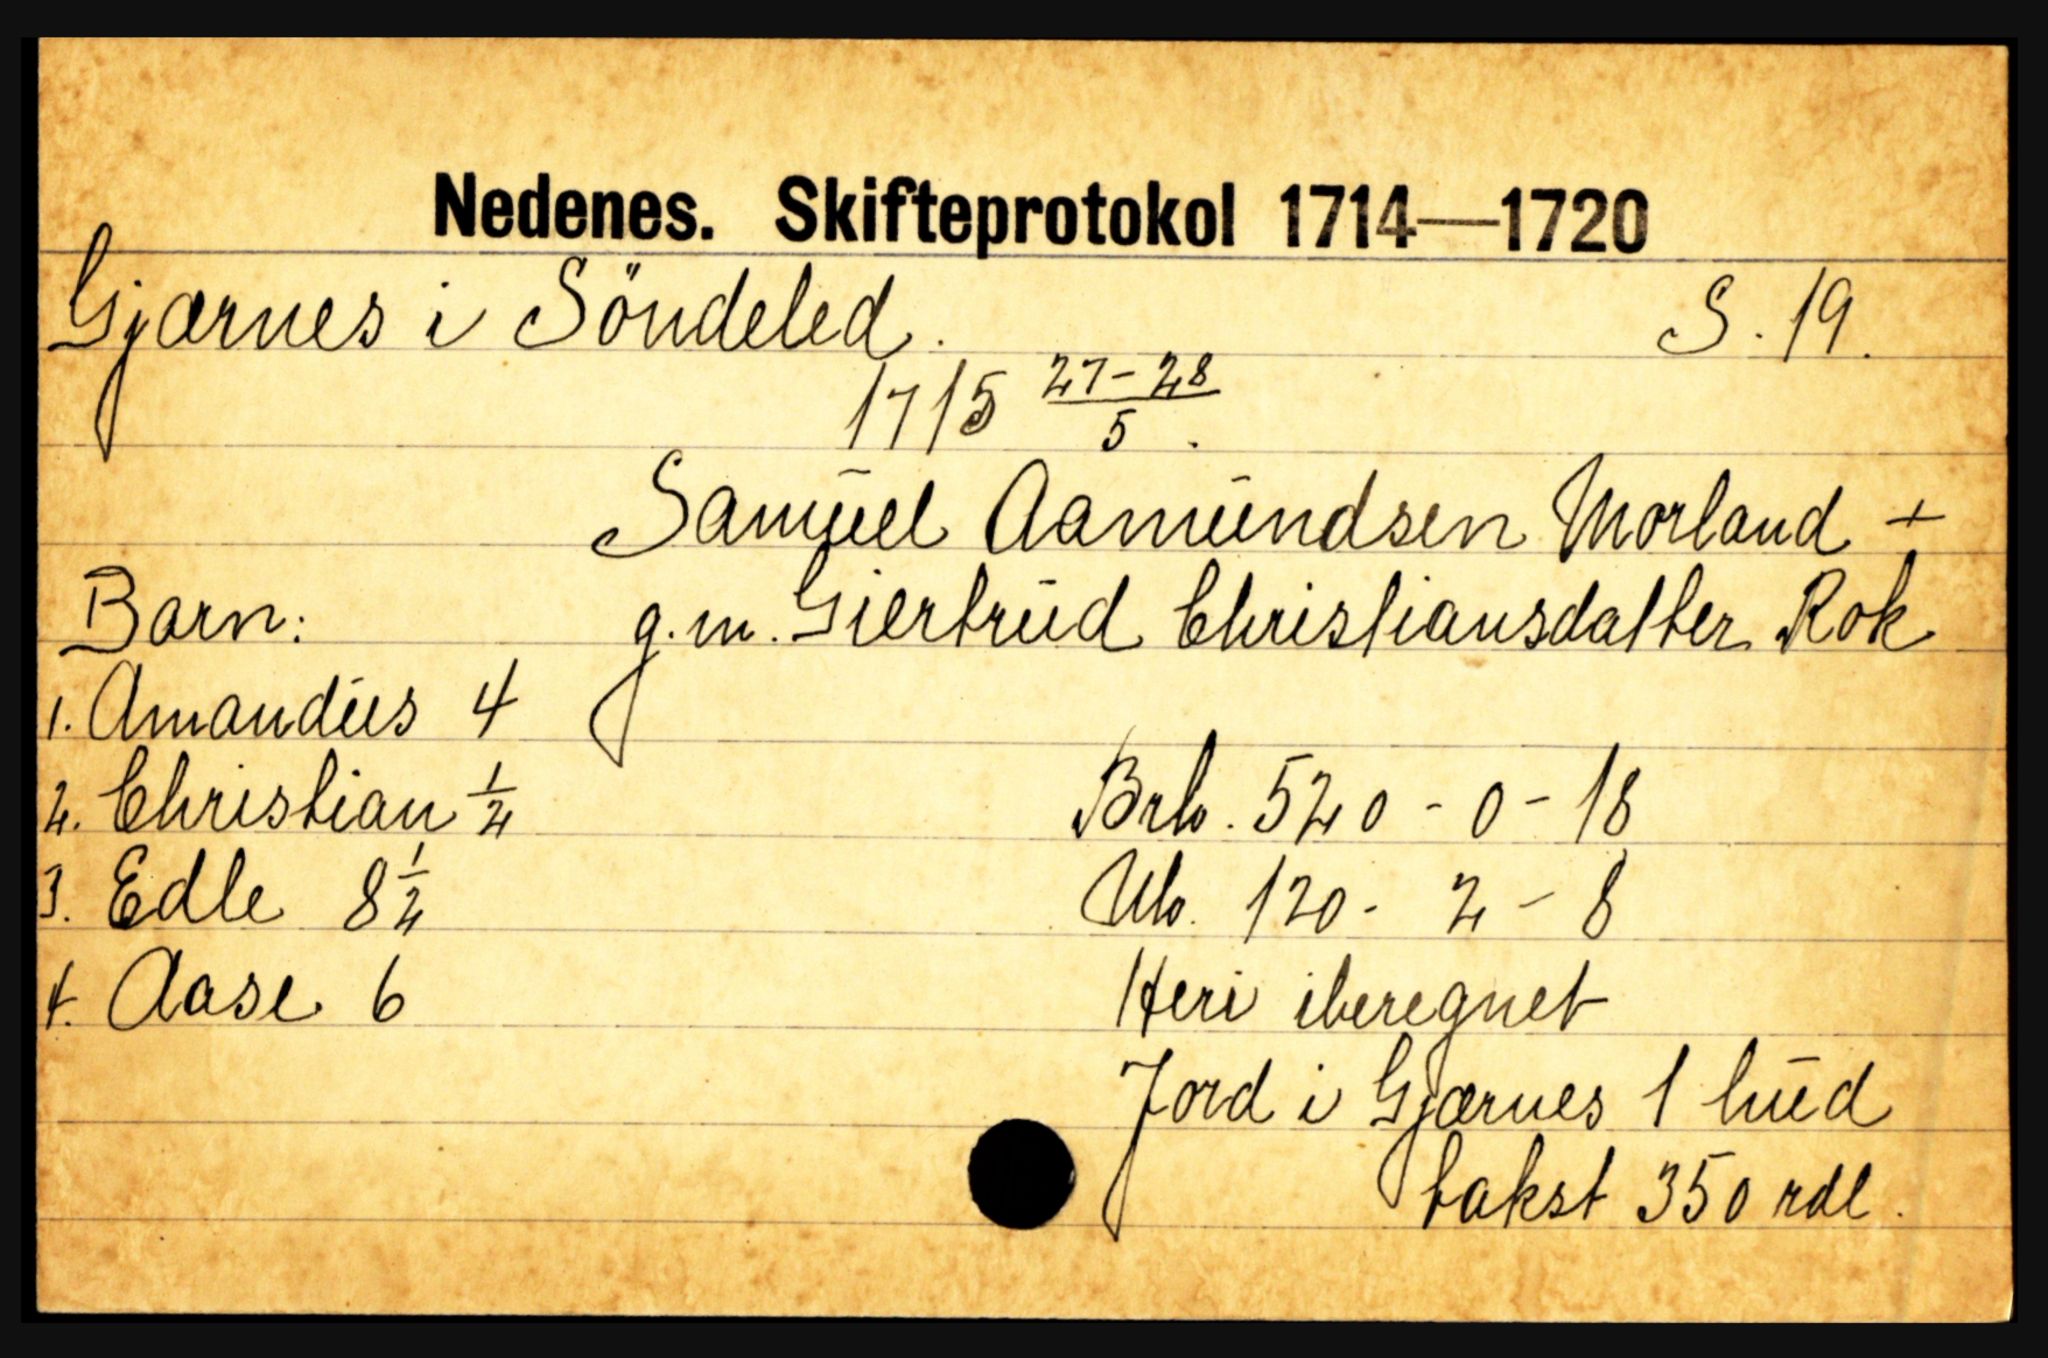 Nedenes. Skifteprotokol 1714—1720
Gjærnes i Söndeled. S. 19.
1715 27-28/5.
Samuel Aamundsen Morland +
Barn: g.m. Giertrud Christiansdatter Rok
1. Amandus 4
2. Christian 1/2 Brb. 520 - 0 - 18
3. Edle 8 1/2 Ub. 120 - 2 - 8
4. Aase 6 Heri iberegnet
Jord i Gjærnes 1 hud
takst 350 rdl.